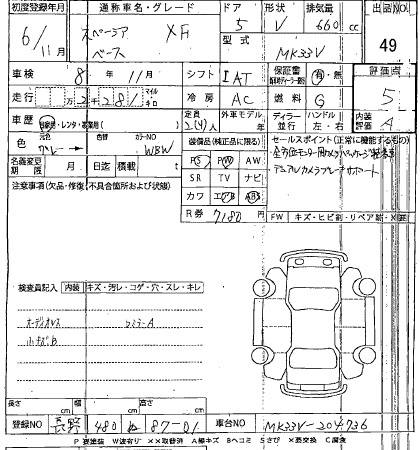 初度登録年月 通称車名・グレード ドア 形状 排気量 出品NO
6/11月 スペーシア XF 5 V 660 cc 49
ベース 型式 MK33V
車検 8 年 11 月 シフト IAT 保証書 有・無 評価点
走行 2 千 281 マイル キロ 冷房 AC 燃料 G 5
車歴 自家用・レンタ・営業用 定員 2(4)人 外車モデル ディーラー 並行 ハンドル 左・右 内装評価 A
色 元色 グレー 色替 カラーNO WBW 装備品(純正品に限る) セールスポイント(正常に機能するもの)
PS PW AW ・全方位モニター用カメラパッケージ装着車
名義変更期限 月 日迄 積載 t SR TV ナビ ・デュアルカメラブレーキサポート
注意事項(欠品・修復・不具合箇所および状態) カワ エアB ABS
R券 7180 FW キズ・ヒビ割・リペア跡・X
検査員記入 内装 キズ・汚レ・コゲ・穴・スレ・キレ
オーディオレス シミラーA
小キズB
長さ cm 幅 cm 高さ cm
登録NO 長野 480 ぬ 87-01 車台NO MK33V-204736
P 要塗装 W波有り XX取替済 A線キズ Bヘコミ Sさび X要交換 C腐食